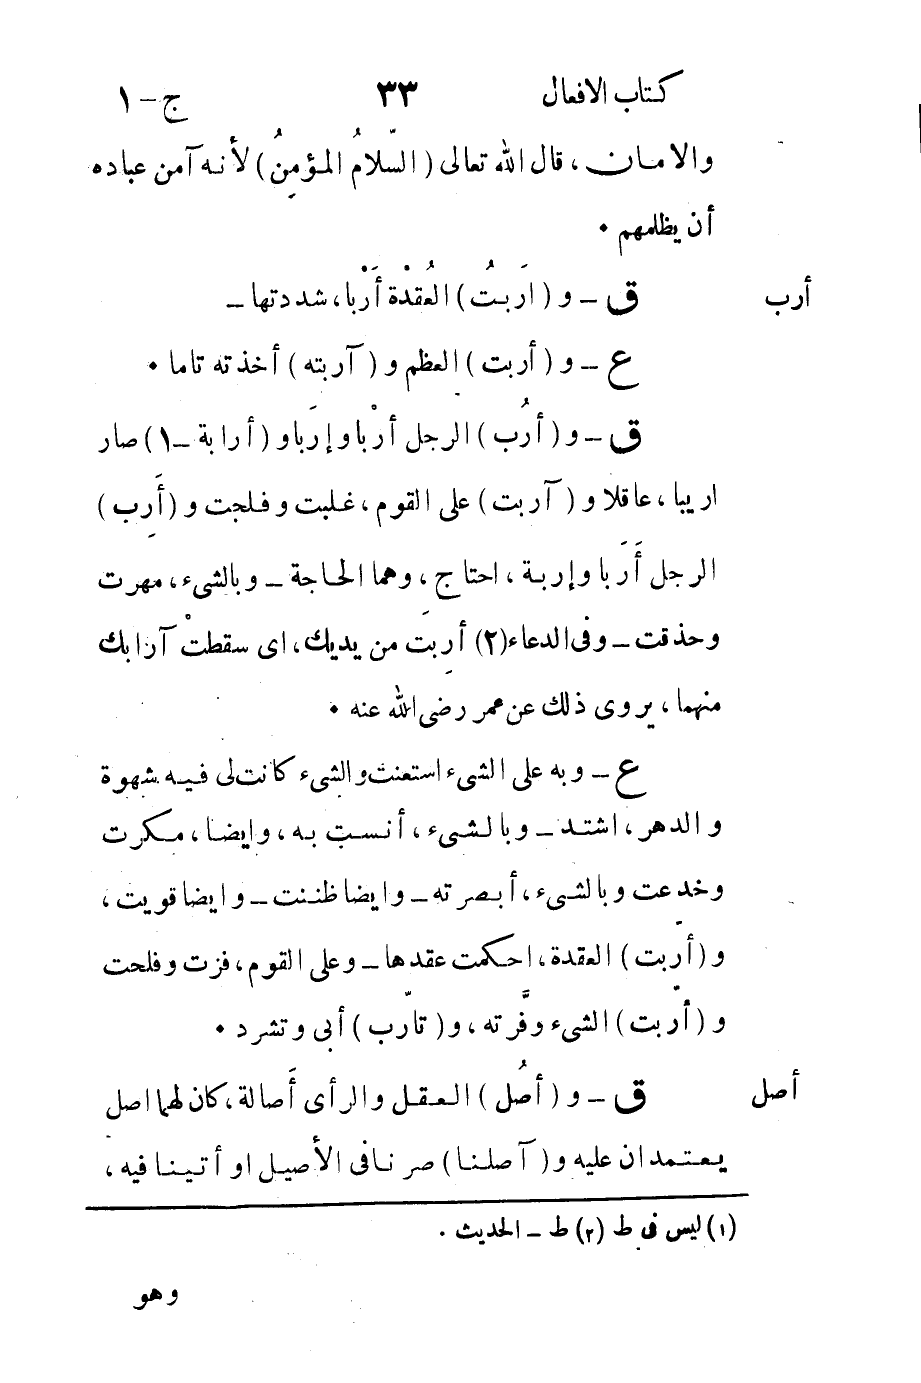 كتاب الافعال ٣٣ ج – ١
والامان، قال الله تعالى (السّلامُ المؤمِنُ) لأنه آمن عباده
أن يظلمهم •
أرب ق – و (اَربتُ) العُقْدةَ أَرْبا، شددتها –
ع – و (أربت) العظم و (آربته) أخذته تاما •
ق – و (أرُب) الرجل أرْبا وإرَبا و (أرابة – ١) صار
اريبا، عاقلا و (آربت) على القوم، غلبت وفلجت و (أَرِب)
الرجل أَرَبا وإربة، احتاج، وهما الحاجة – وبالشىء، مهرت
وحذقت – وفى الدعاء (٢) أرِبَت من يديك، اى سقطتْ آرابك
منهما، يروى ذلك عن عمر رضى الله عنه •
ع – وبه على الشىء استعنت والشىء كانت لى فيه شهوة
والدهر، اشتد – وبالشىء، أنست به، وايضا، مكرت
وخدعت وبالشىء، أبصرته – وايضا ظننت – وايضا قويت،
و (أربت) العقدة، احكمت عقدها – وعلى القوم، فزت وفلحت
و (أرّبت) الشىء وفّرته، و (تأرّب) أبى وتشرد •
أصل ق – و (أصُل) العقل والرأى أَصالة، كان لهما اصل
يعتمدان عليه و (آصلنا) صرنا فى الأصيل او أتينا فيه،
(١) ليس فى ط (٢) ط – الحديث •
وهو